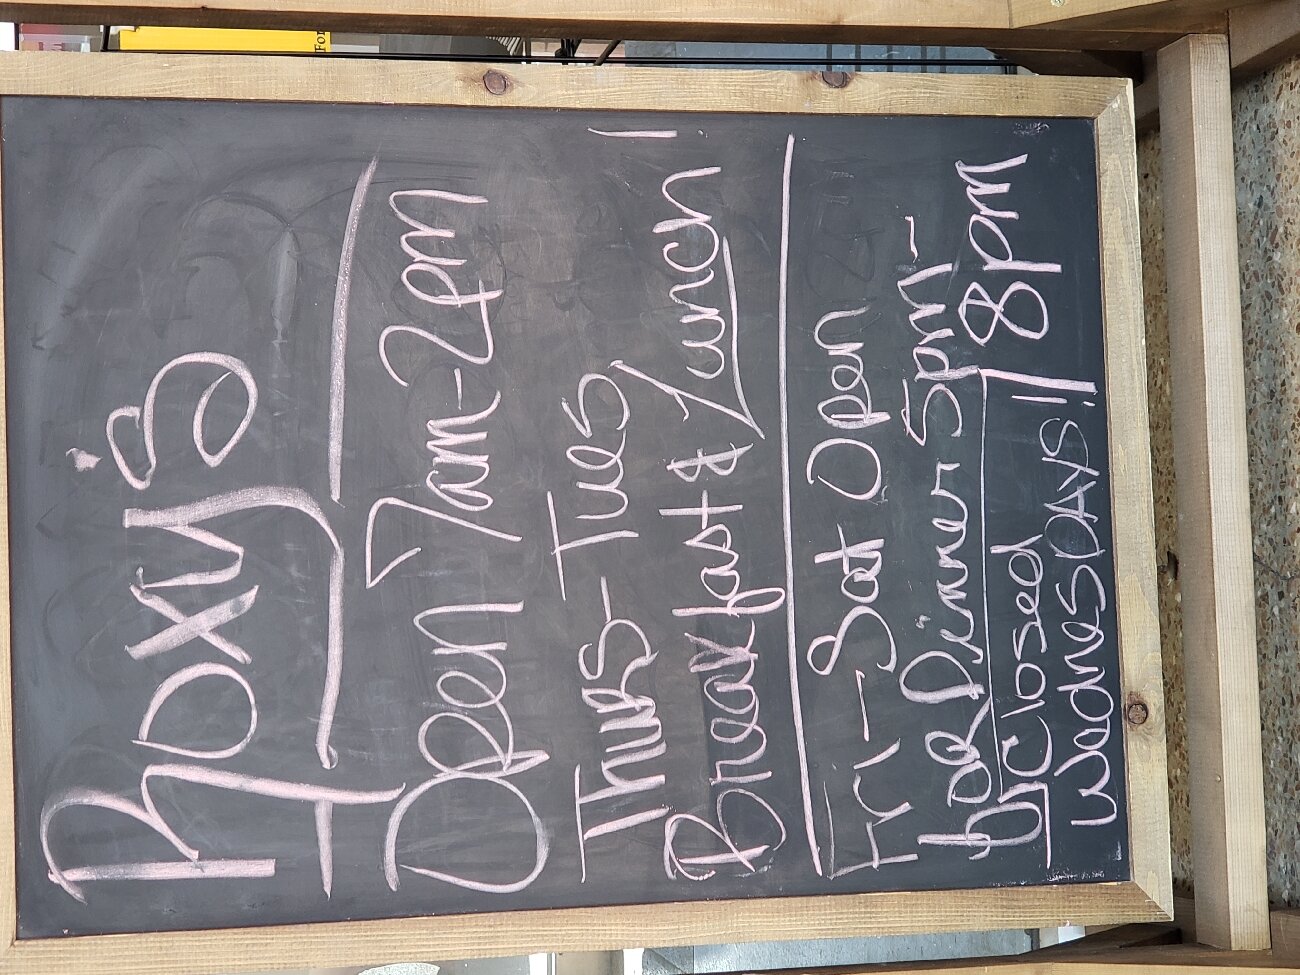 Roxy's
Open 7am-2pm
Thurs-Tues
Breakfast & Lunch!
Fri-Sat Open
for Dinner 5pm-
8pm
Closed
WednesDAYS!
For